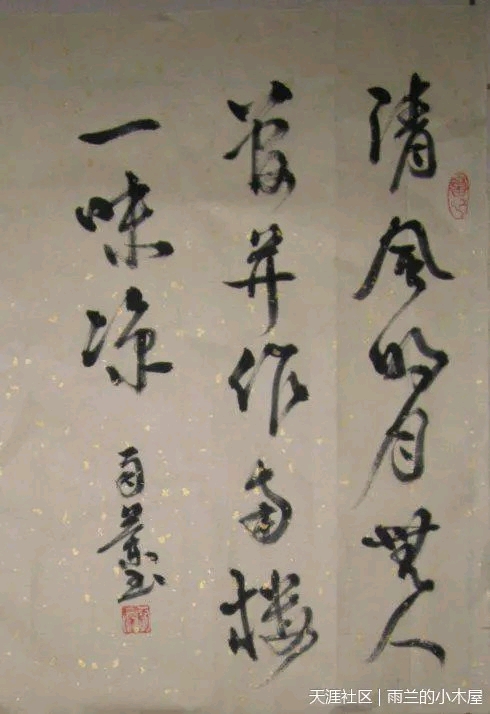 清風明月無人
管并作南楼
一味凉
雨蘭书
天涯社区 | 雨兰的小木屋